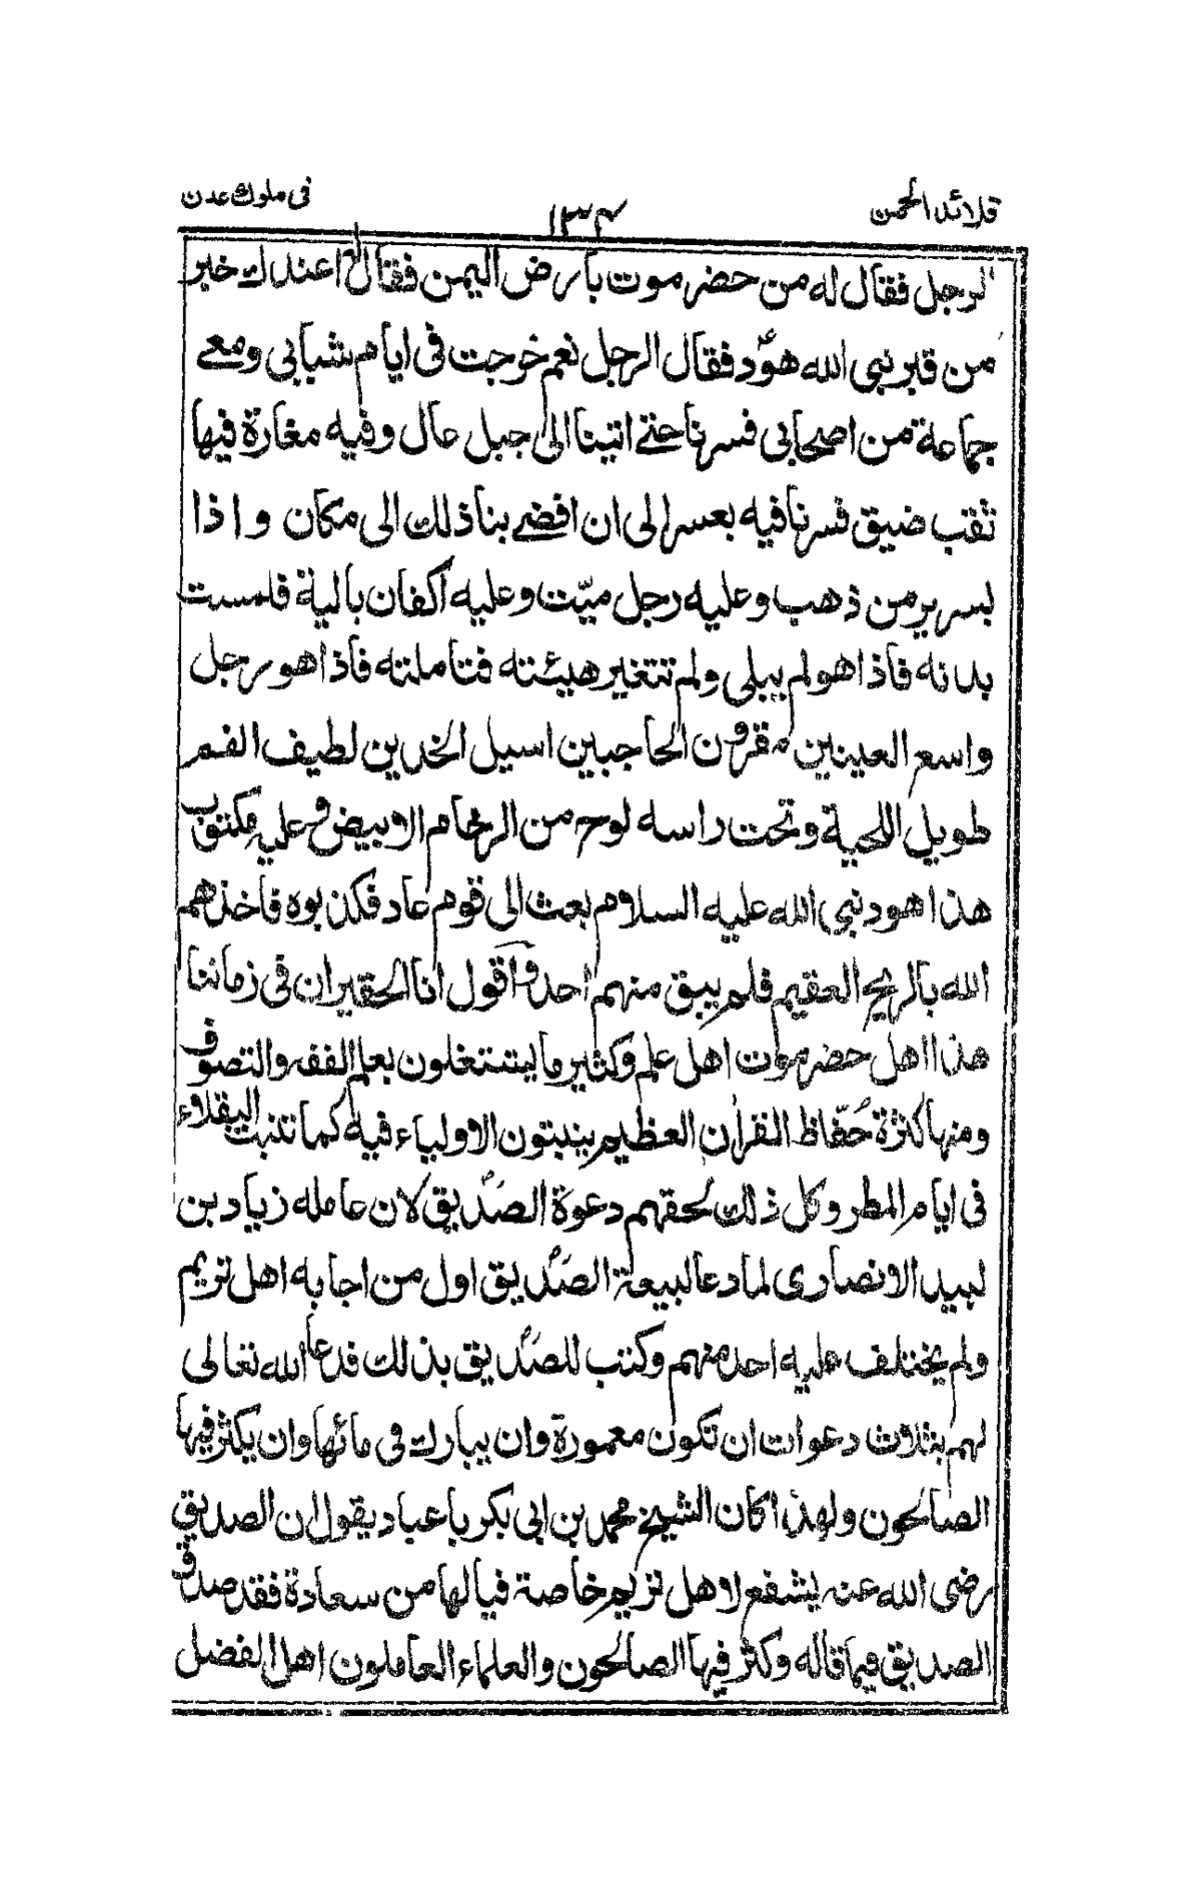 قلائد الجمن
١٣٤
فى ملوك عدن
الرجل فقال له من حضرموت بارض اليمن فقال اعندك خبر
من قبر نبى الله هود فقال الرجل نعم خرجت فى ايام شبابى ومعے
جماعة من اصحابى فسرنا حتے اتينا الى جبل عال وفيه مغارة فيها
ثقب ضيق فسرنا فيه بعسر الى ان افضے بنا ذلك الى مكان واذا
بسرير من ذهب وعليه رجل ميّت وعليه اكفان بالية فلمست
بدنه فاذا هو لم يبلى ولم تتغير هيئته فتاملته فاذا هو رجل
واسع العينين مقرون الحاجبين اسيل الخدين لطيف الفم
طويل اللحية وتحت راسه لوح من الرخام الابيض وعليه مكتوب
هذا هود نبى الله عليه السلام بعث الى قوم عاد فكذبوه فاخذهم
الله بالريح العقيم فلم يبق منهم احد واقول انا الحقير ان فى زماننا
هذا اهل حضرموت اهل علم وكثير ما يشتغلون بعلم الفقه والتصوف
ومنها كثرة حُفّاظ القرأن العظيم ينبتون الاولياء فيه كما تنبت البقلاء
فى ايام المطر وكل ذلك لحقهم دعوة الصّديق لان عامله زياد بن
لبيد الانصارى لما دعا لبيعة الصّديق اول من اجابه اهل تريم
ولم يختلف عليه احد منهم وكتب للصّديق بذلك فدعا الله تعالى
لهم بثلاث دعوات ان تكون معمورة وان يبارك فى مائها وان يكثر فيها
الصالحون ولهذا كان الشيخ محمد بن ابى بكر باعباد يقول ان الصديق
رضى الله عنه يشفع لاهل تريم خاصة فيا لها من سعادة فقد صدق
الصديق فيما قاله وكثر فيها الصالحون والعلماء العاملون اهل الفضل